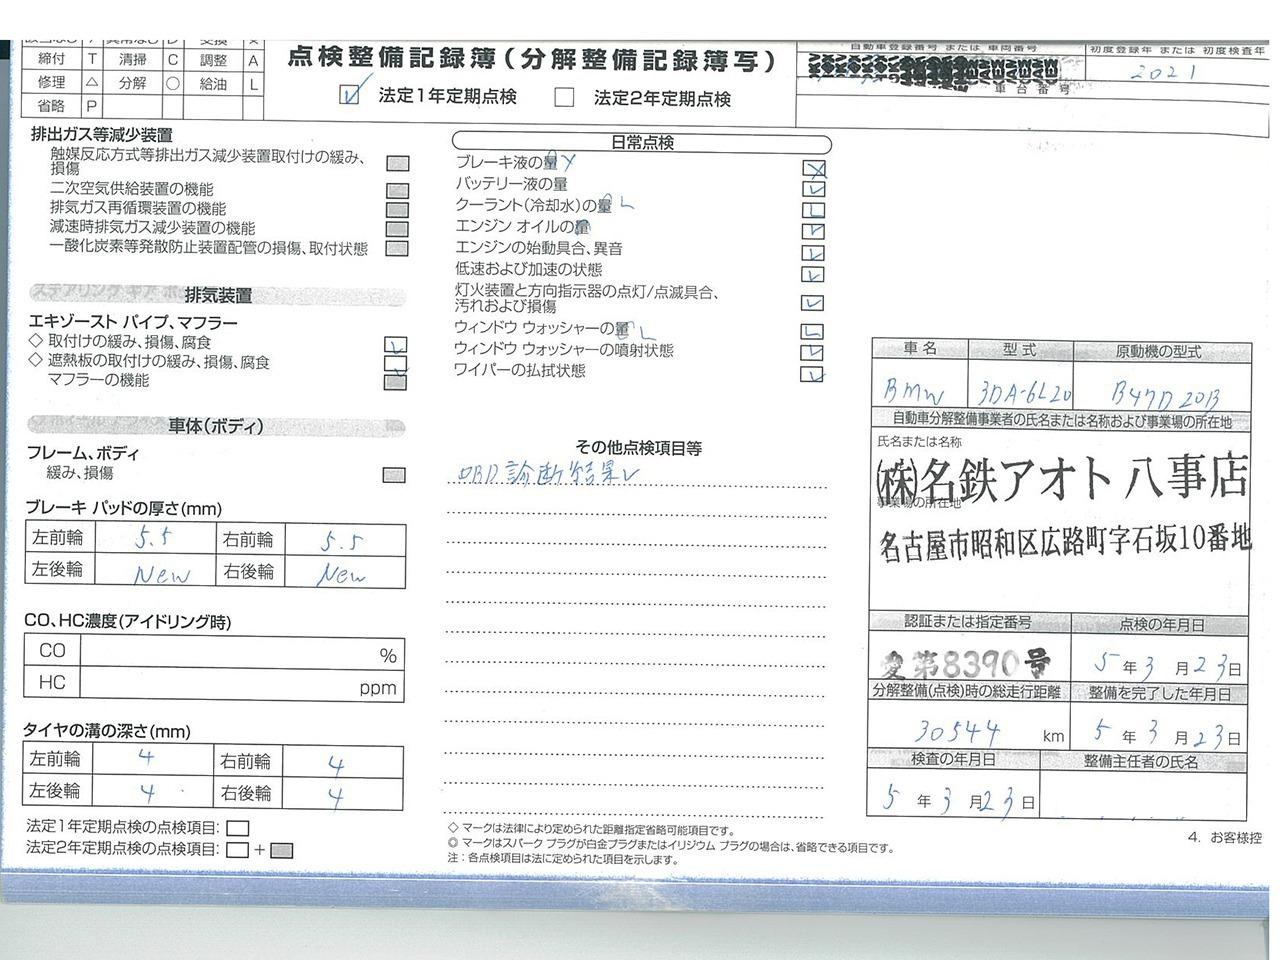 締付 T 清掃 C 調整 A
修理 △ 分解 ○ 給油 L
省略 P
点検整備記録簿(分解整備記録簿写)
法定1年定期点検 法定2年定期点検
自動車登録番号 または 車両番号
車台番号
初度登録年 または 初度検査年
2021
排出ガス等減少装置
触媒反応方式等排出ガス減少装置取付けの緩み、
損傷
二次空気供給装置の機能
排気ガス再循環装置の機能
減速時排気ガス減少装置の機能
一酸化炭素等発散防止装置配管の損傷、取付状態
排気装置
エキゾースト パイプ、マフラー
◇ 取付けの緩み、損傷、腐食
◇ 遮熱板の取付けの緩み、損傷、腐食
マフラーの機能
車体(ボディ)
フレーム、ボディ
緩み、損傷
ブレーキ パッドの厚さ(mm)
左前輪 5.5 右前輪 5.5
左後輪 New 右後輪 New
CO、HC濃度(アイドリング時)
CO %
HC ppm
タイヤの溝の深さ(mm)
左前輪 4 右前輪 4
左後輪 4 右後輪 4
法定1年定期点検の点検項目:
法定2年定期点検の点検項目: +
日常点検
ブレーキ液の量
バッテリー液の量
クーラント(冷却水)の量 L
エンジン オイルの量
エンジンの始動具合、異音
低速および加速の状態
灯火装置と方向指示器の点灯/点滅具合、
汚れおよび損傷
ウィンドウ ウォッシャーの量 L
ウィンドウ ウォッシャーの噴射状態
ワイパーの払拭状態
その他点検項目等
OBD診断結果
◇ マークは法律により定められた距離指定省略可能項目です。
◎ マークはスパーク プラグが白金プラグまたはイリジウム プラグの場合は、省略できる項目です。
注:各点検項目は法に定められた項目を示します。
車名 型式 原動機の型式
BMW 3DA-6L20 B47D20B
自動車分解整備事業者の氏名または名称および事業場の所在地
氏名または名称
(株)名鉄アオト 八事店
事業場の所在地
名古屋市昭和区広路町字石坂10番地
認証または指定番号 点検の年月日
愛第8390号 5年3月23日
分解整備(点検)時の総走行距離 整備を完了した年月日
30544 km 5年3月23日
検査の年月日 整備主任者の氏名
5年3月23日
4. お客様控